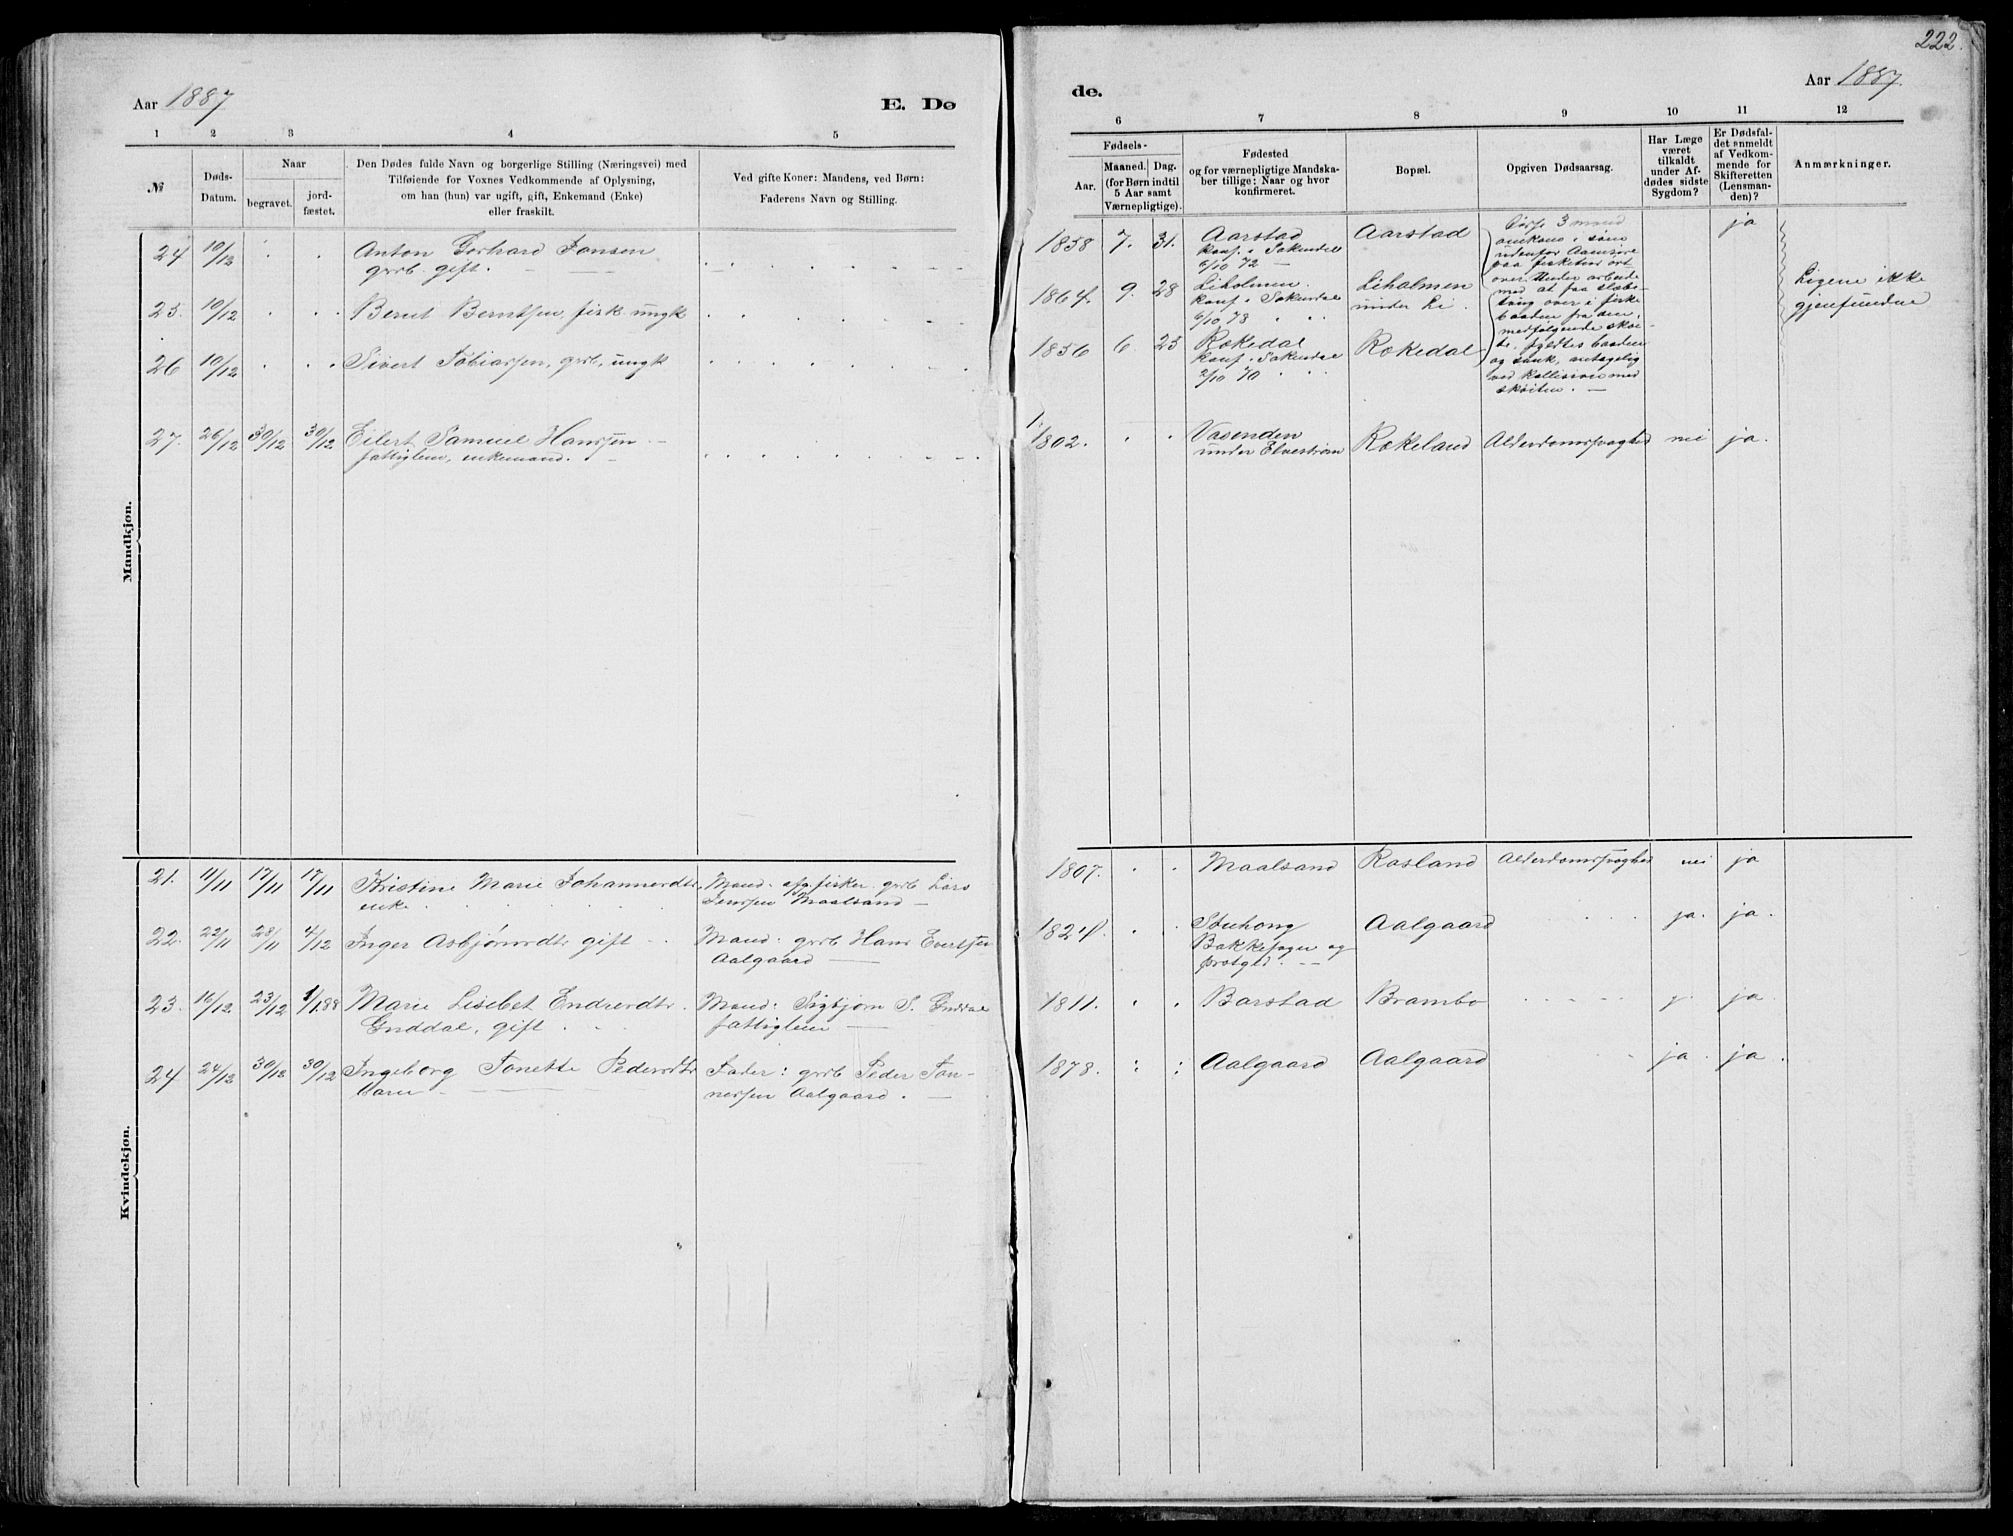 222.
Aar 1887
E. Dø
de.
Aar 1887.
1 2 3 4 5
6 7 8 9 10 11 12
№
Døds-
Datum.
Naar
begravet.
jord-
fæstet.
Den Dødes fulde Navn og borgerlige Stilling (Næringsvei) med
Tilføiende for Voxnes Vedkommende af Oplysning,
om han (hun) var ugift, gift, Enkemand (Enke)
eller fraskilt.
Ved gifte Koner: Mandens, ved Børn:
Faderens Navn og Stilling.
Fødsels-
Aar.
Maaned. Dag.
(for Børn indtil
5 Aar samt
Værnepligtige).
Fødested
og for værnepligtige Mandska-
ber tillige: Naar og hvor
konfirmeret.
Bopæl.
Opgiven Dødsaarsag.
Har Læge
været
tilkaldt
under Af-
dødes sidste
Sygdom?
Er Dødsfal-
det anmeldt
af Vedkom-
mende for
Skifteretten
(Lensman-
den)?
Anmærkninger.
Mandkjøn.
24 10/12 Anton Gerhard Jansen
grrb. gift.
1858 7. 31. Aarstad
konf. i Sokndal
6/10 72
Aarstad
ja
25. 10/12 Bernt Berntsen, fisk. ungk
1864. 9. 28 Liholmen
konf. i Sokndal
6/10 78
Liholmen
under Li.
26 10/12 Sivert Tobiassen, grrb, ungk
1856 6. 23 Rekedal
konf. i Sokndal
2/10 70
Rekedal
Disse 3 mænd
omkom i søen
udenfor Aanasire
paa fisketur ort
over. Under arbeide
med at faa slæbe-
tung over i fiske
baaden fra den
medfølgende skøi-
te, fyldtes baaden
og sank, antagelig
ved kollision med
skøiten.
Ligene ikke
gjenfundne
27. 26/12 30/12 30/12 Eilert Samuel Hanssen
fattiglem, enkemand.
1802. Vasenden
under Elvestrøm
Rekeland Alderdomssvaghed nei ja.
Kvindekjøn.
21. 11/11 17/11 17/11 Kristine Marie Johannesdtr.
enke
Mand: afg. fisker. grrb Lars
Jenssen Maalsand
1807. Maalsand Rasland Alderdomssvaghed nei ja
22. 22/11 28/11 4/12 Inger Asbjørnsdtr gift
Mand: grrb Hans Evertsen
Aalgaard
1824. Stuhoug
Bakkesogn og
prstgld.
Aalgaard ja. ja.
23. 16/12 23/12 1/1.88 Marie Lisebet Endresdtr.
Guddal, gift
Mand: Sigbjørn S. Guddal
fattiglem
1811. Barstad Brambo j. ja.
24 24/12 30/12 30/12 Ingeborg Tonette Pedersdtr
barn
Fader: grrb Peder Tøn-
nessen Aalgaard.
1878. Aalgaard Aalgaard ja. ja.